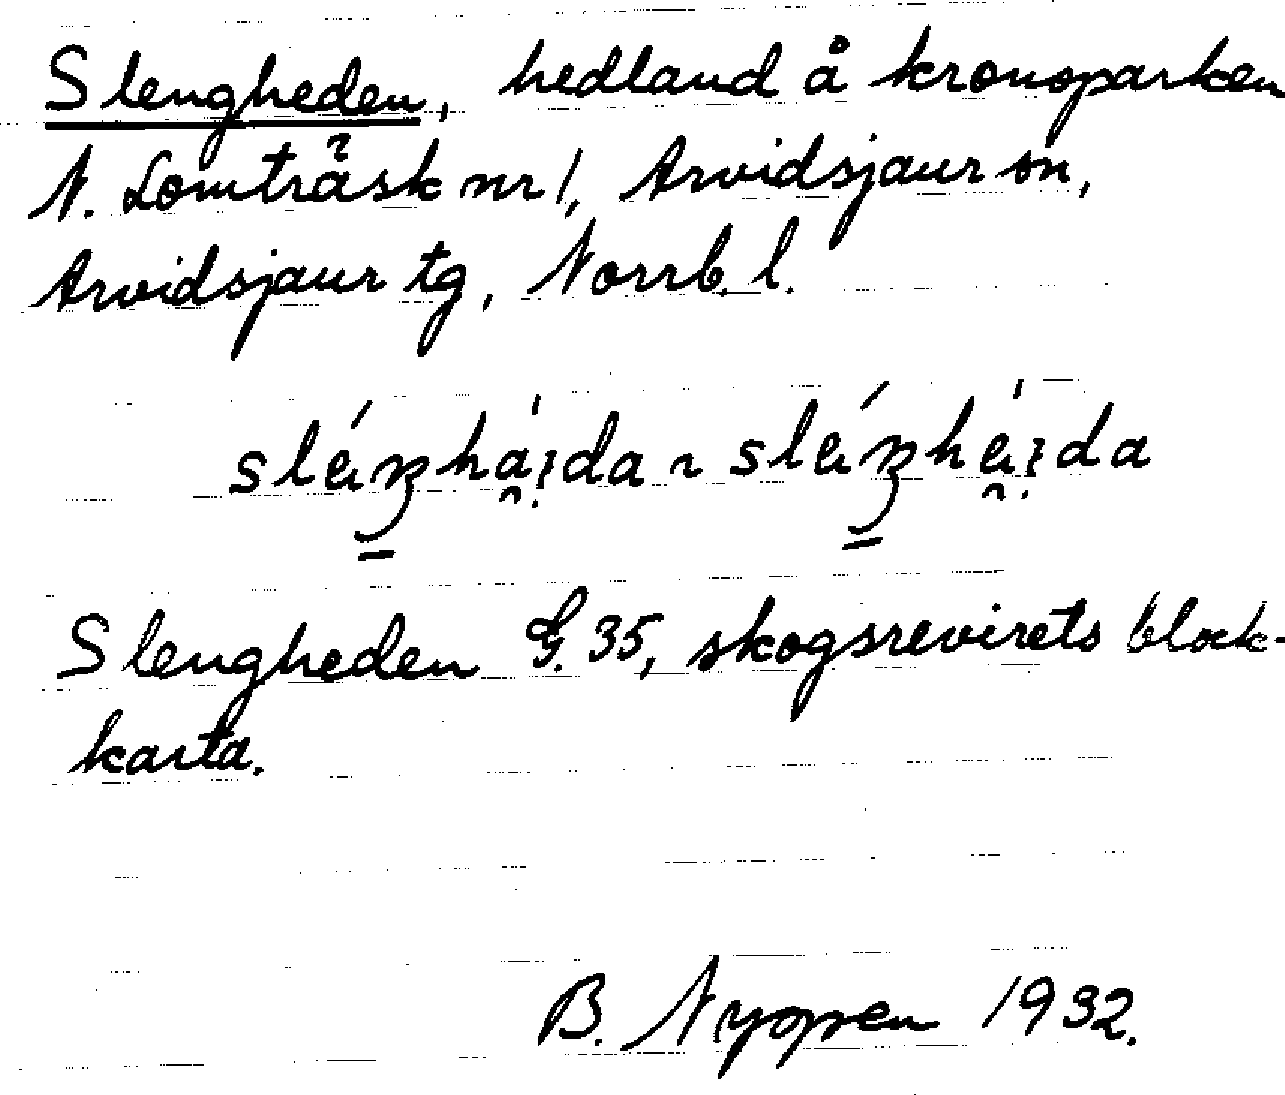 Slengheden, hedland å kronoparken
N. Lomträsk nr 1, Arvidsjaur sn,
Arvidsjaur tg, Norrb. l.
Slengheden G. 35, skogsrevirets block-
karta.
B. Nyppen 1932.